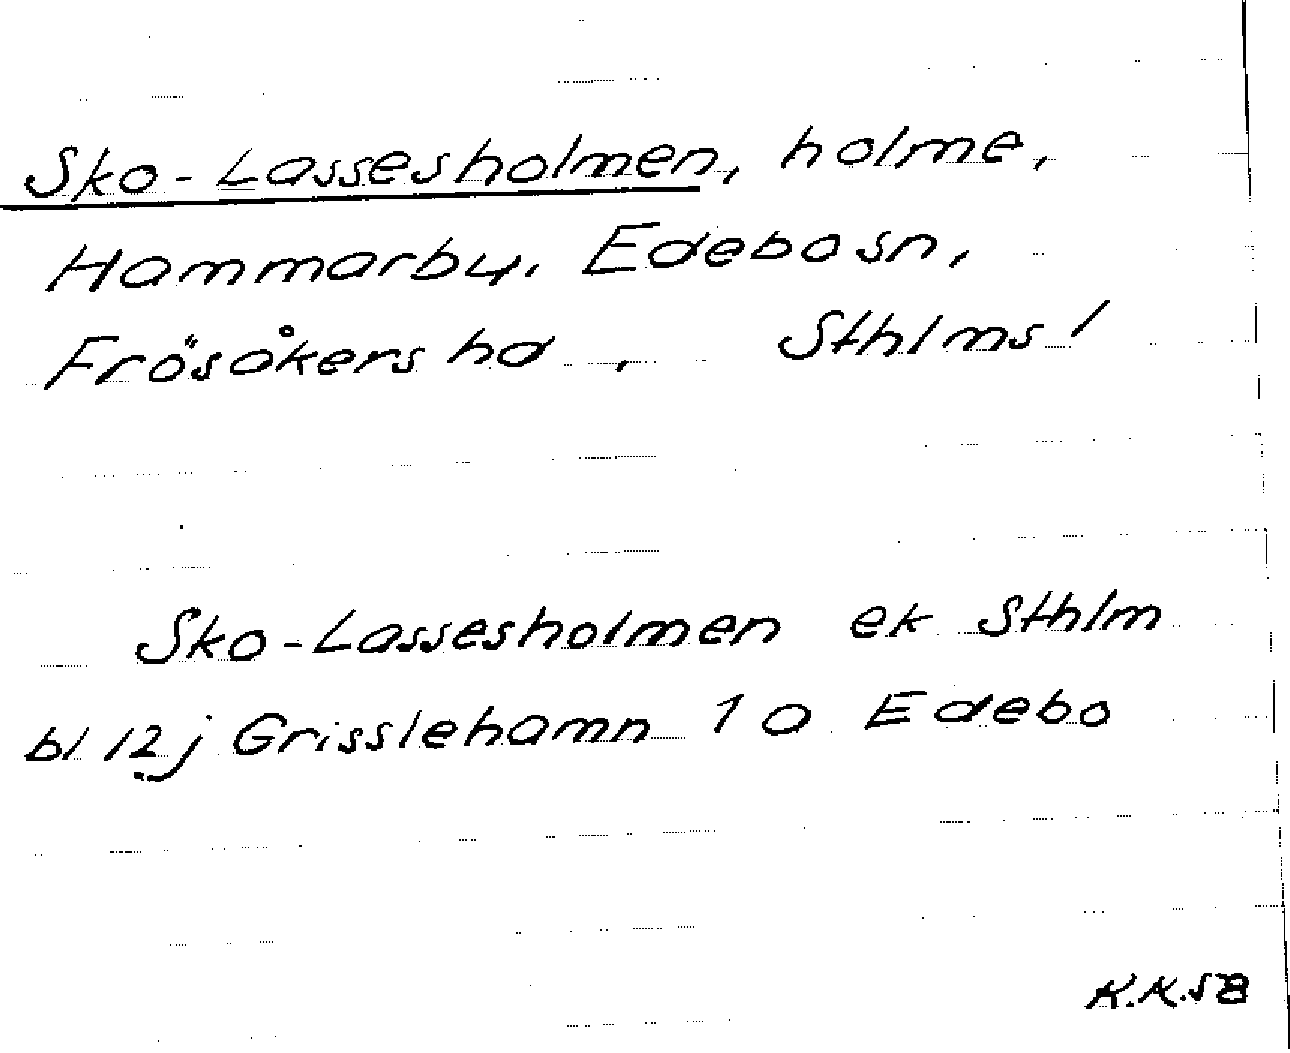 Sko-Lassesholmen, holme,
Hammarby, Edebo sn,
Frösåkers hd, Sthlms l
Sko-Lassesholmen ek Sthlm
bl 12j Grisslehamn 10 Edebo
K.K.58